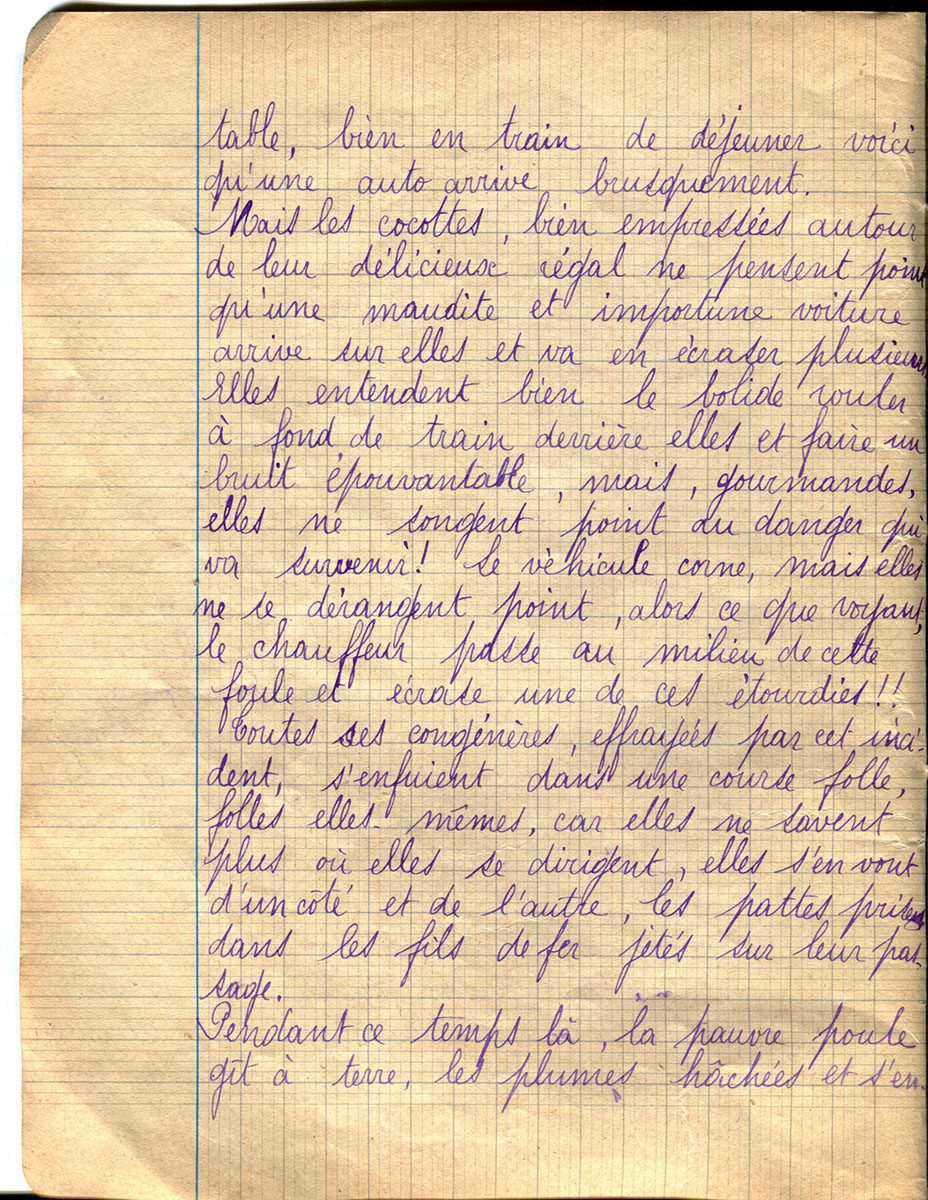 table, bien en train de déjeuner voici
qu'une auto arrive brusquement.
Mais les cocottes, bien empressées autour
de leur délicieux régal ne pensent point
qu'une maudite et importune voiture
arrive sur elles et va en écraser plusieurs.
Elles entendent bien le bolide rouler
à fond de train derrière elles et faire un
bruit épouvantable, mais, gourmandes,
elles ne songent point au danger qui
va survenir! Le véhicule corne, mais elles
ne se dérangent point, alors ce que voyant,
le chauffeur passe au milieu de cette
foule et écrase une de ces étourdies!!
Toutes ses congénères, effrayées par cet inci-
dent, s'enfuient dans une course folle,
folles elles-mêmes, car elles ne savent
plus où elles se dirigent, elles s'en vont
d'un côté et de l'autre, les pattes prises
dans les fils de fer jetés sur leur pas-
sage.
Pendant ce temps là, la pauvre poule
gît à terre, les plumes hâchées et s'en-